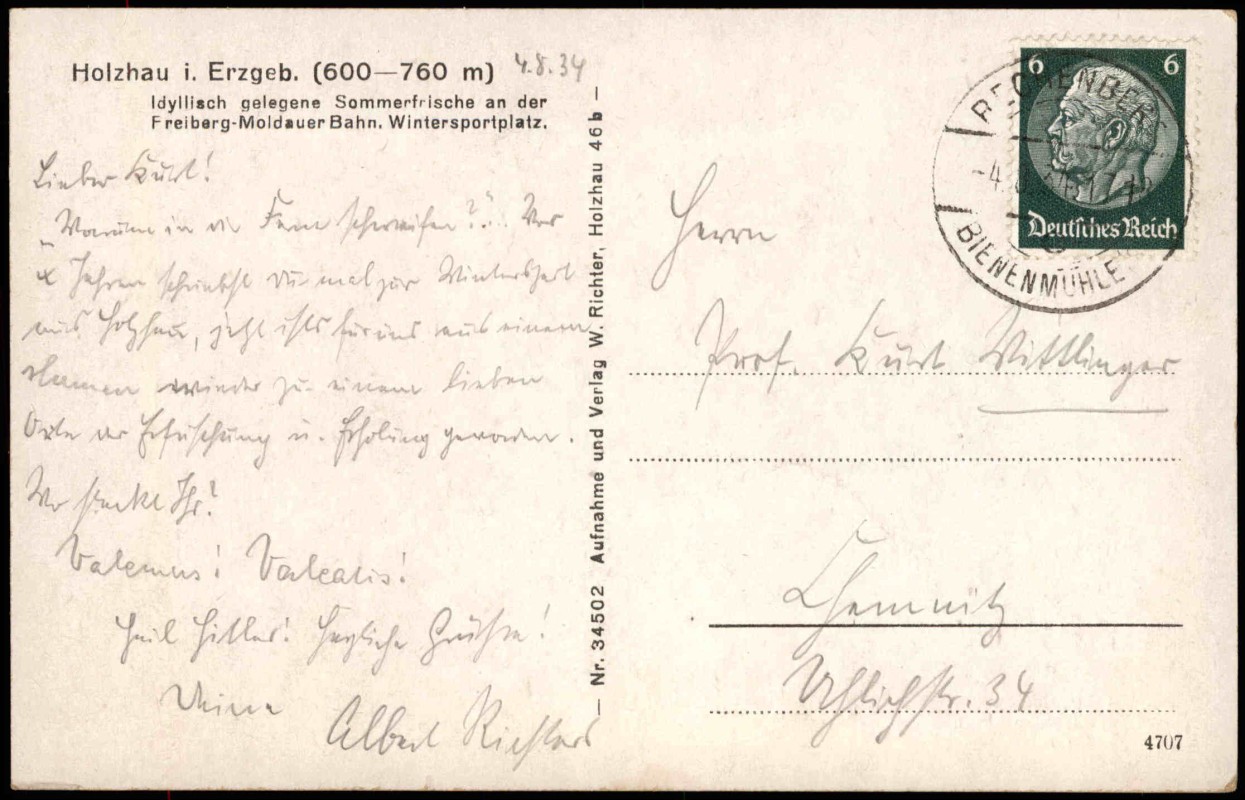 Holzhau i. Erzgeb. (600—760 m) 4.8.34
Idyllisch gelegene Sommerfrische an der
Freiberg-Moldauer Bahn. Wintersportplatz.
Lieber Kurt!
„Warum in die Fern schweifen?" Vor
x Jahren schriebst Du mal zur Winterszeit
aus Holzhau, jetzt ists für uns aus einem
Namen wieder zu einem lieben
Orte der Erfrischung u. Erholung geworden.
Wo steckt Ihr?
Valemus! Valeatis!
Heil Hitler! Herzliche Grüße!
Deine
Albert Richters
— Nr. 34502 Aufnahme und Verlag W. Richter, Holzhau 46b —
6 6
Deutsches Reich
RECHENBERG
BIENENMÜHLE
Herrn
Prof. Kurt Wittlinger
Chemnitz
Uhlichstr. 34
4707